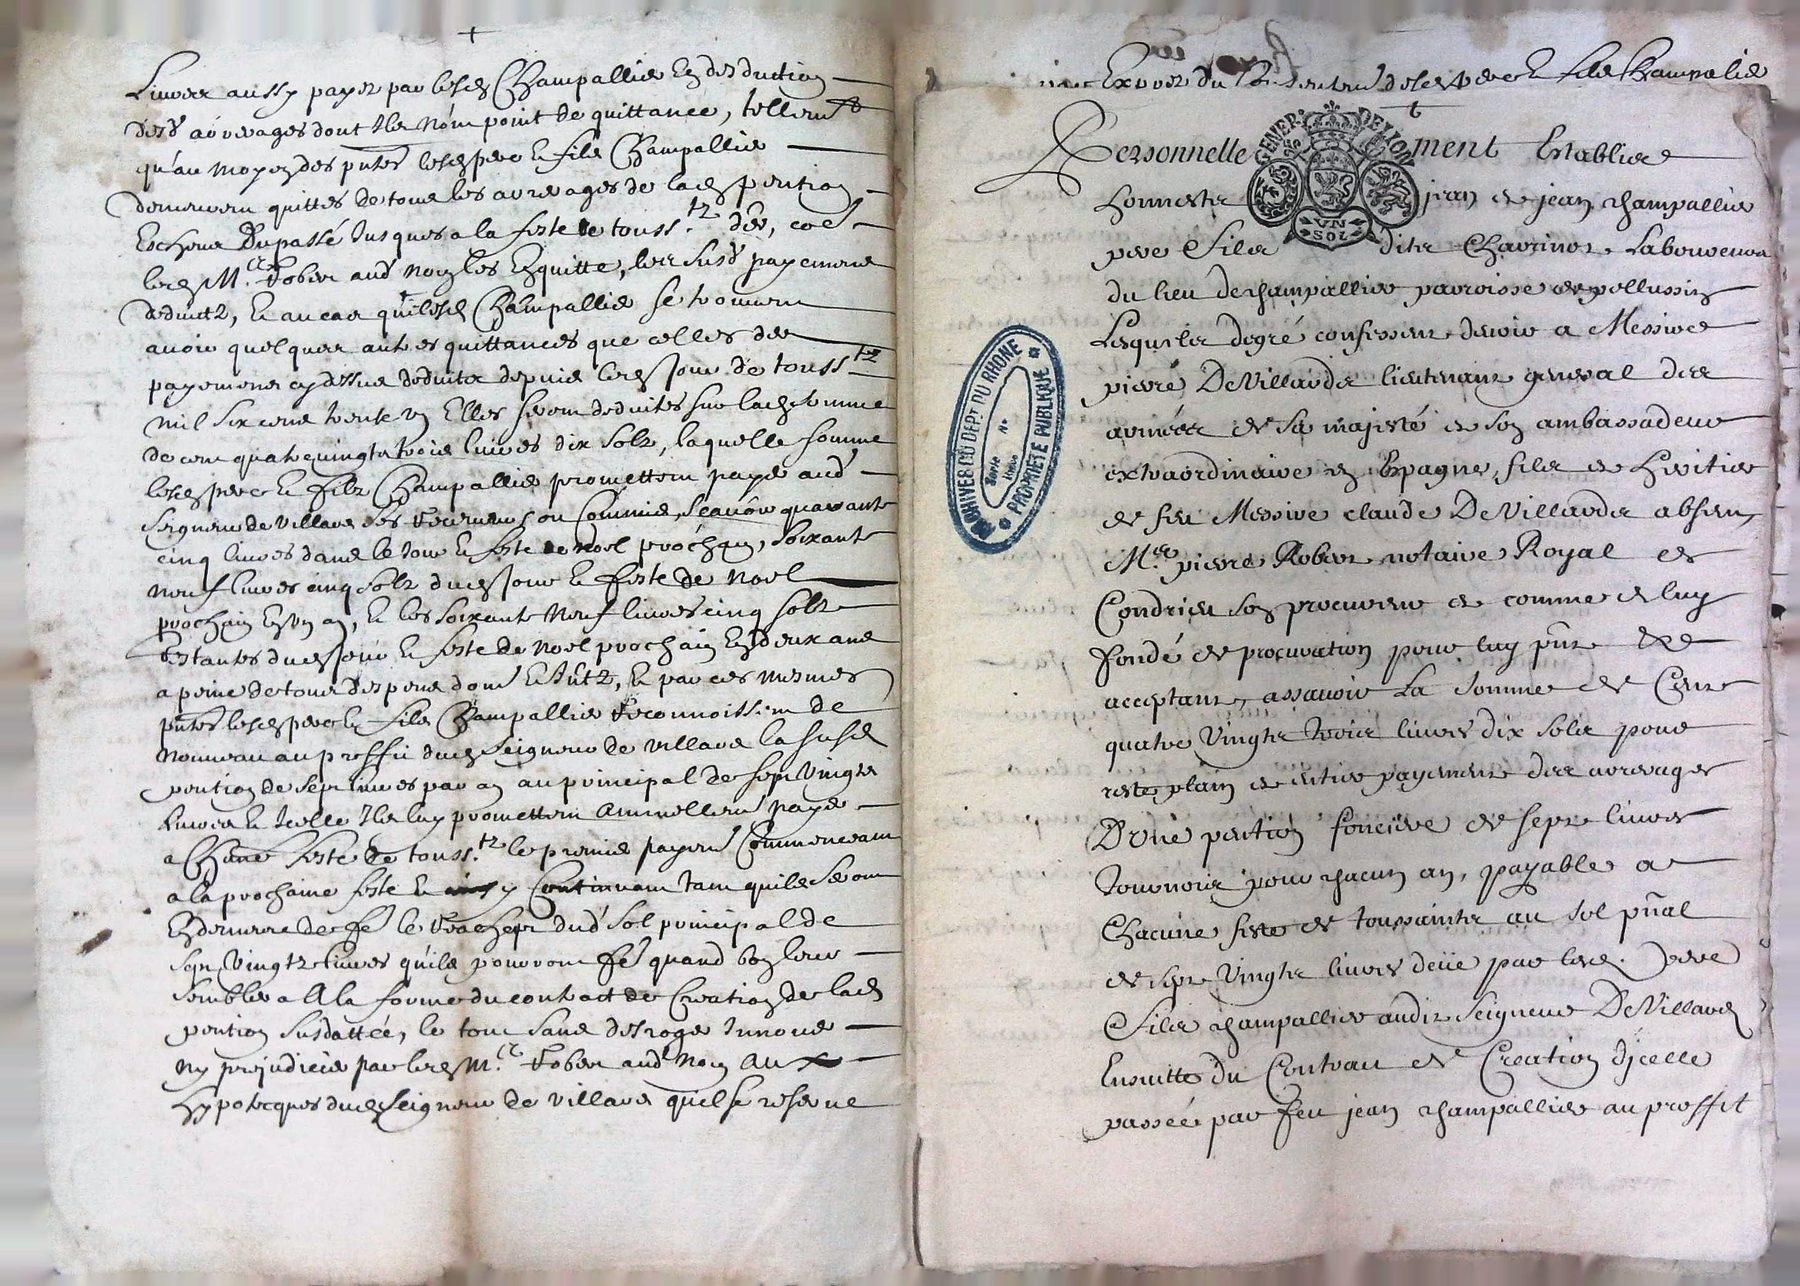 Livres aussy payez par lesd Champallier en desduction
desd arrerages dont Ils nont point de quittance, tellemt
qu'au moyen des pntes lesd pere et fils Champallier
demeurent quittes de tous les arrerages de lad pention
Escheus du passé Jusques a la feste de touss.tz der,
led M.e Robert aud nom les En quitte, les susd payements
deduictz, Et au cas qu'lesd Champallier se trouvent
avoir quelques autres quittances que celles des
payements cy dessus deduites depuis led Jour de touss.tz
mil six cens trente un Elles seront deduites sur lad somme
de cent quatre vingts trois livres dix solz, laquelle somme
lesd pere et filz Champallier promettent payer aud
Seigneur de Villars ses Recepveurs ou Commis, Scavoir quarante
cinq livres dans le Jour et feste de Noel prochain, soixante
neuf livres cinq solz dud Jour et feste de Noel
prochain En un an, et les soixante neuf livres cinq solz
restantes dud Jour et feste de Noel prochain En deux ans
a peine de tous despens dom. et Intz, Et par ces mesmes
pntes lesd pere et fils Champallier Reconnoissent de
Nouveau au proffit dud Seigneur de Villars la susd
pention de sept livres par an au principal de sept Vingts
livres Et Icelle Ils luy promettent Annuellemt payer
a Chune feste de touss.tz le premier payemt Commenceant
a la prochaine feste Et y Continuant tant qu'ils seront
En demeure de fe le Rachept dud sol principal de
sept Vingtz livres qu'ils pourront fe quand bon leur
semblera A la forme du contract de Creation de lad
pention susdattée, le tout sans desroger Innover
ny prejudicier par led M.e Robert aud Nom aux
hypotecques dud Seigneur de Villars qu'il se reserve
pere et fils Champalier
Personnellement Establiz
Honneste jean et jean champallier
pere & fils dits Chavrinot Laboureurs
du lieu de champallier parroisse de pellussin
Lesquels de gré confessent devoir a Messire
pierre De Villards lieutenant general des
armées de sa majesté et son ambassadeur
extraordinaire en Espagne, fils et heritier
de feu Messire claude De Villards absent
M.e pierre Robert notaire Royal de
Condrieu son procureur et comme de luy
fondé de procuration pour luy pnt &
acceptant, assavoir La somme de Cent
quatre Vingts trois livres dix sols pour
reste plain et entier payement des arrerages
D'Une pention fonciere de sept livres
tournois pour chacun an, payable a
Chacune feste de toussaints au sol pnal
de sept Vingts livres deüe par lesd. pere
& fils champallier audit Seigneur De Villards
Ensuitte du Contract de Creation d'icelle
passée par feu jean champallier au proffit
GENER. DE LION
UN SOL
ARCHIVES DU DEPT DU RHONE
Série
N°
PROPRIETE PUBLIQUE